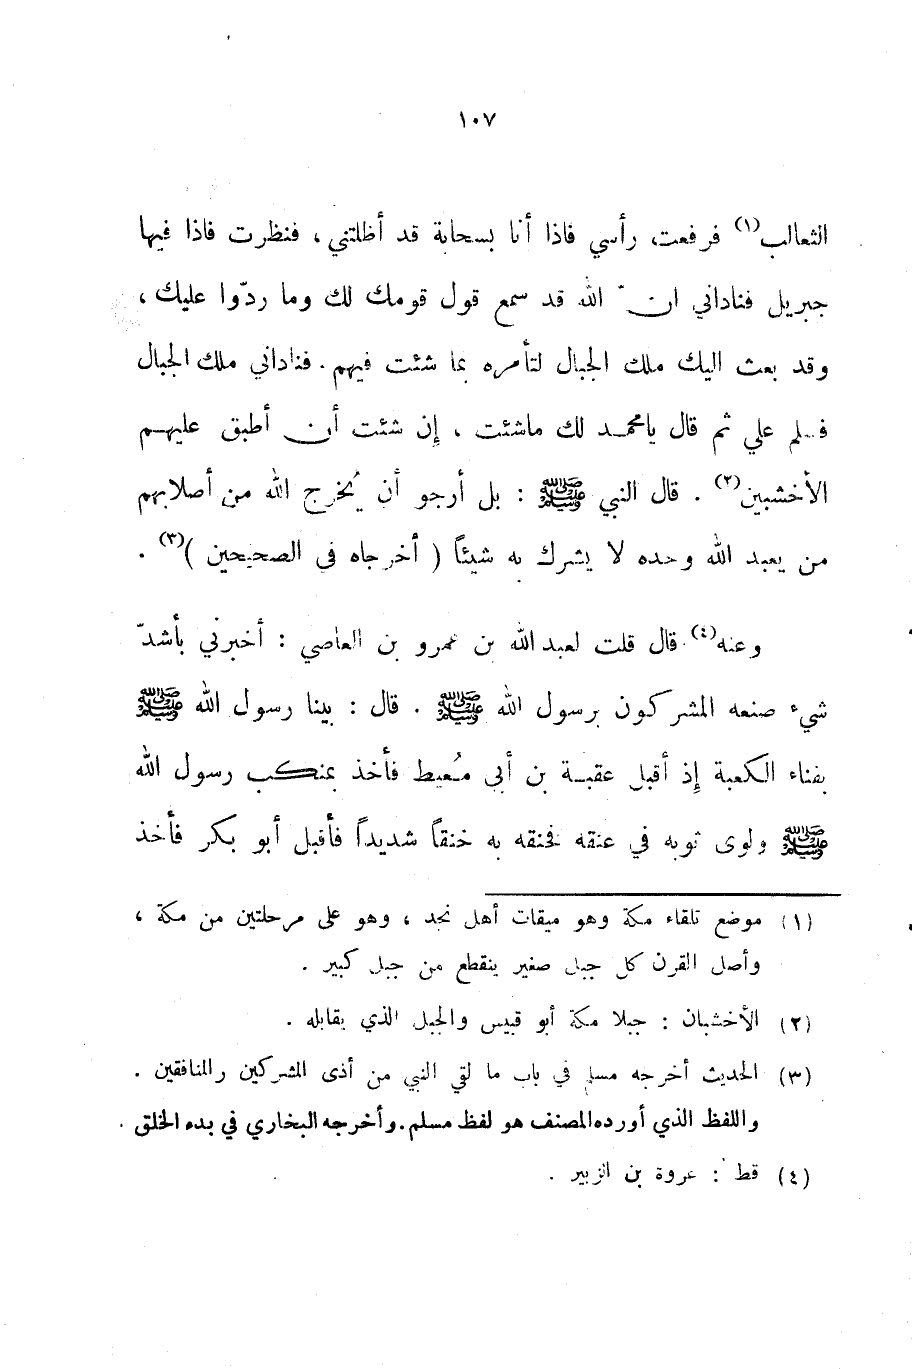 ١٠٧
الثعالب(١) فرفعت رأسي فاذا أنا بسحابة قد أظلتني ، فنظرت فاذا فيها
جبريل فناداني ان ّ الله قد سمع قول قومك لك وما ردّوا عليك ،
وقد بعث اليك ملك الجبال لتأمره بما شئت فيهم . فناداني ملك الجبال
فسلم علي ثم قال يامحمد لك ماشئت ، إن شئت أن أطبق عليهم
الأخشبين(٢) . قال النبي ﷺ : بل أرجو أن يُخرج الله من أصلابهم
من يعبد الله وحده لا يشرك به شيئاً ( أخرجاه في الصحيحين )(٣) .
وعنه(٤) قال قلت لعبد الله بن عمرو بن العاصي : أخبرني بأشدّ
شيء صنعه المشركون برسول الله ﷺ . قال : بينا رسول الله ﷺ
بفناء الكعبة إذ أقبل عقبة بن أبي مُعيط فأخذ بمنكب رسول الله
ﷺ ولوى ثوبه في عنقه فخنقه به خنقاً شديداً فأقبل أبو بكر فأخذ
(١) موضع تلقاء مكة وهو ميقات أهل نجد ، وهو على مرحلتين من مكة ،
وأصل القرن كل جبل صغير ينقطع من جبل كبير .
(٢) الأخشبان : جبلا مكة أبو قبيس والجبل الذي يقابله .
(٣) الحديث أخرجه مسلم في باب ما لقي النبي من أذى المشركين والمنافقين .
واللفظ الذي أورده المصنف هو لفظ مسلم . وأخرجه البخاري في بدء الخلق .
(٤) قط : عروة بن الزبير .